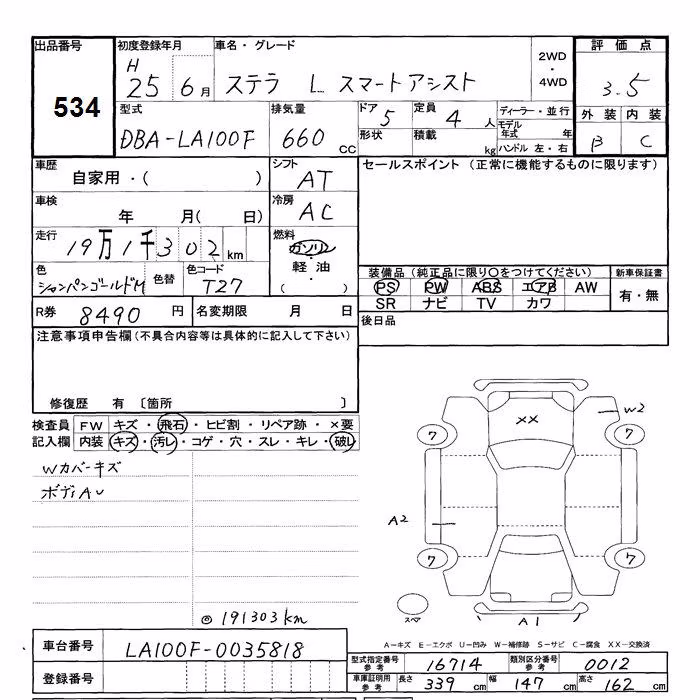 出品番号 初度登録年月 車名・グレード 評価点
534 H 25 6月 ステラ L スマートアシスト 2WD・4WD 3.5
型式 排気量 ドア 定員 ディーラー・並行 外装 内装
DBA-LA100F 660cc 5 4人 モデル年式 年 B C
形状 積載 kg ハンドル 左・右
車歴 シフト セールスポイント (正常に機能するものに限ります)
自家用・( ) AT
車検 冷房
年 月( 日) AC
走行 燃料
19万1千302km ガソリン・軽油
色 色替 色コード 装備品(純正品に限り○をつけてください) 新車保証書
シャンパンゴールドM T27 PS PW ABS エアB AW 有・無
SR ナビ TV カワ
R券 8490円 名変期限 月 日 後日品
注意事項申告欄(不具合内容等は具体的に記入して下さい)
修復歴 有 〔箇所 〕
検査員記入欄 FW キズ・飛石・ヒビ割・リペア跡・×要
内装 キズ・汚レ・コゲ・穴・スレ・キレ・破レ
Wカバーキズ
ボディAU
XX W2
7 7
A2
7 7
スペア A1
◎191303km
A-キズ E-エクボ U-凹み W-補修跡 S-サビ C-腐食 XX-交換済
車台番号 LA100F-0035818
型式指定番号参考 16714 類別区分番号参考 0012
登録番号
車庫証明用参考 長さ 339cm 幅 147cm 高さ 162cm